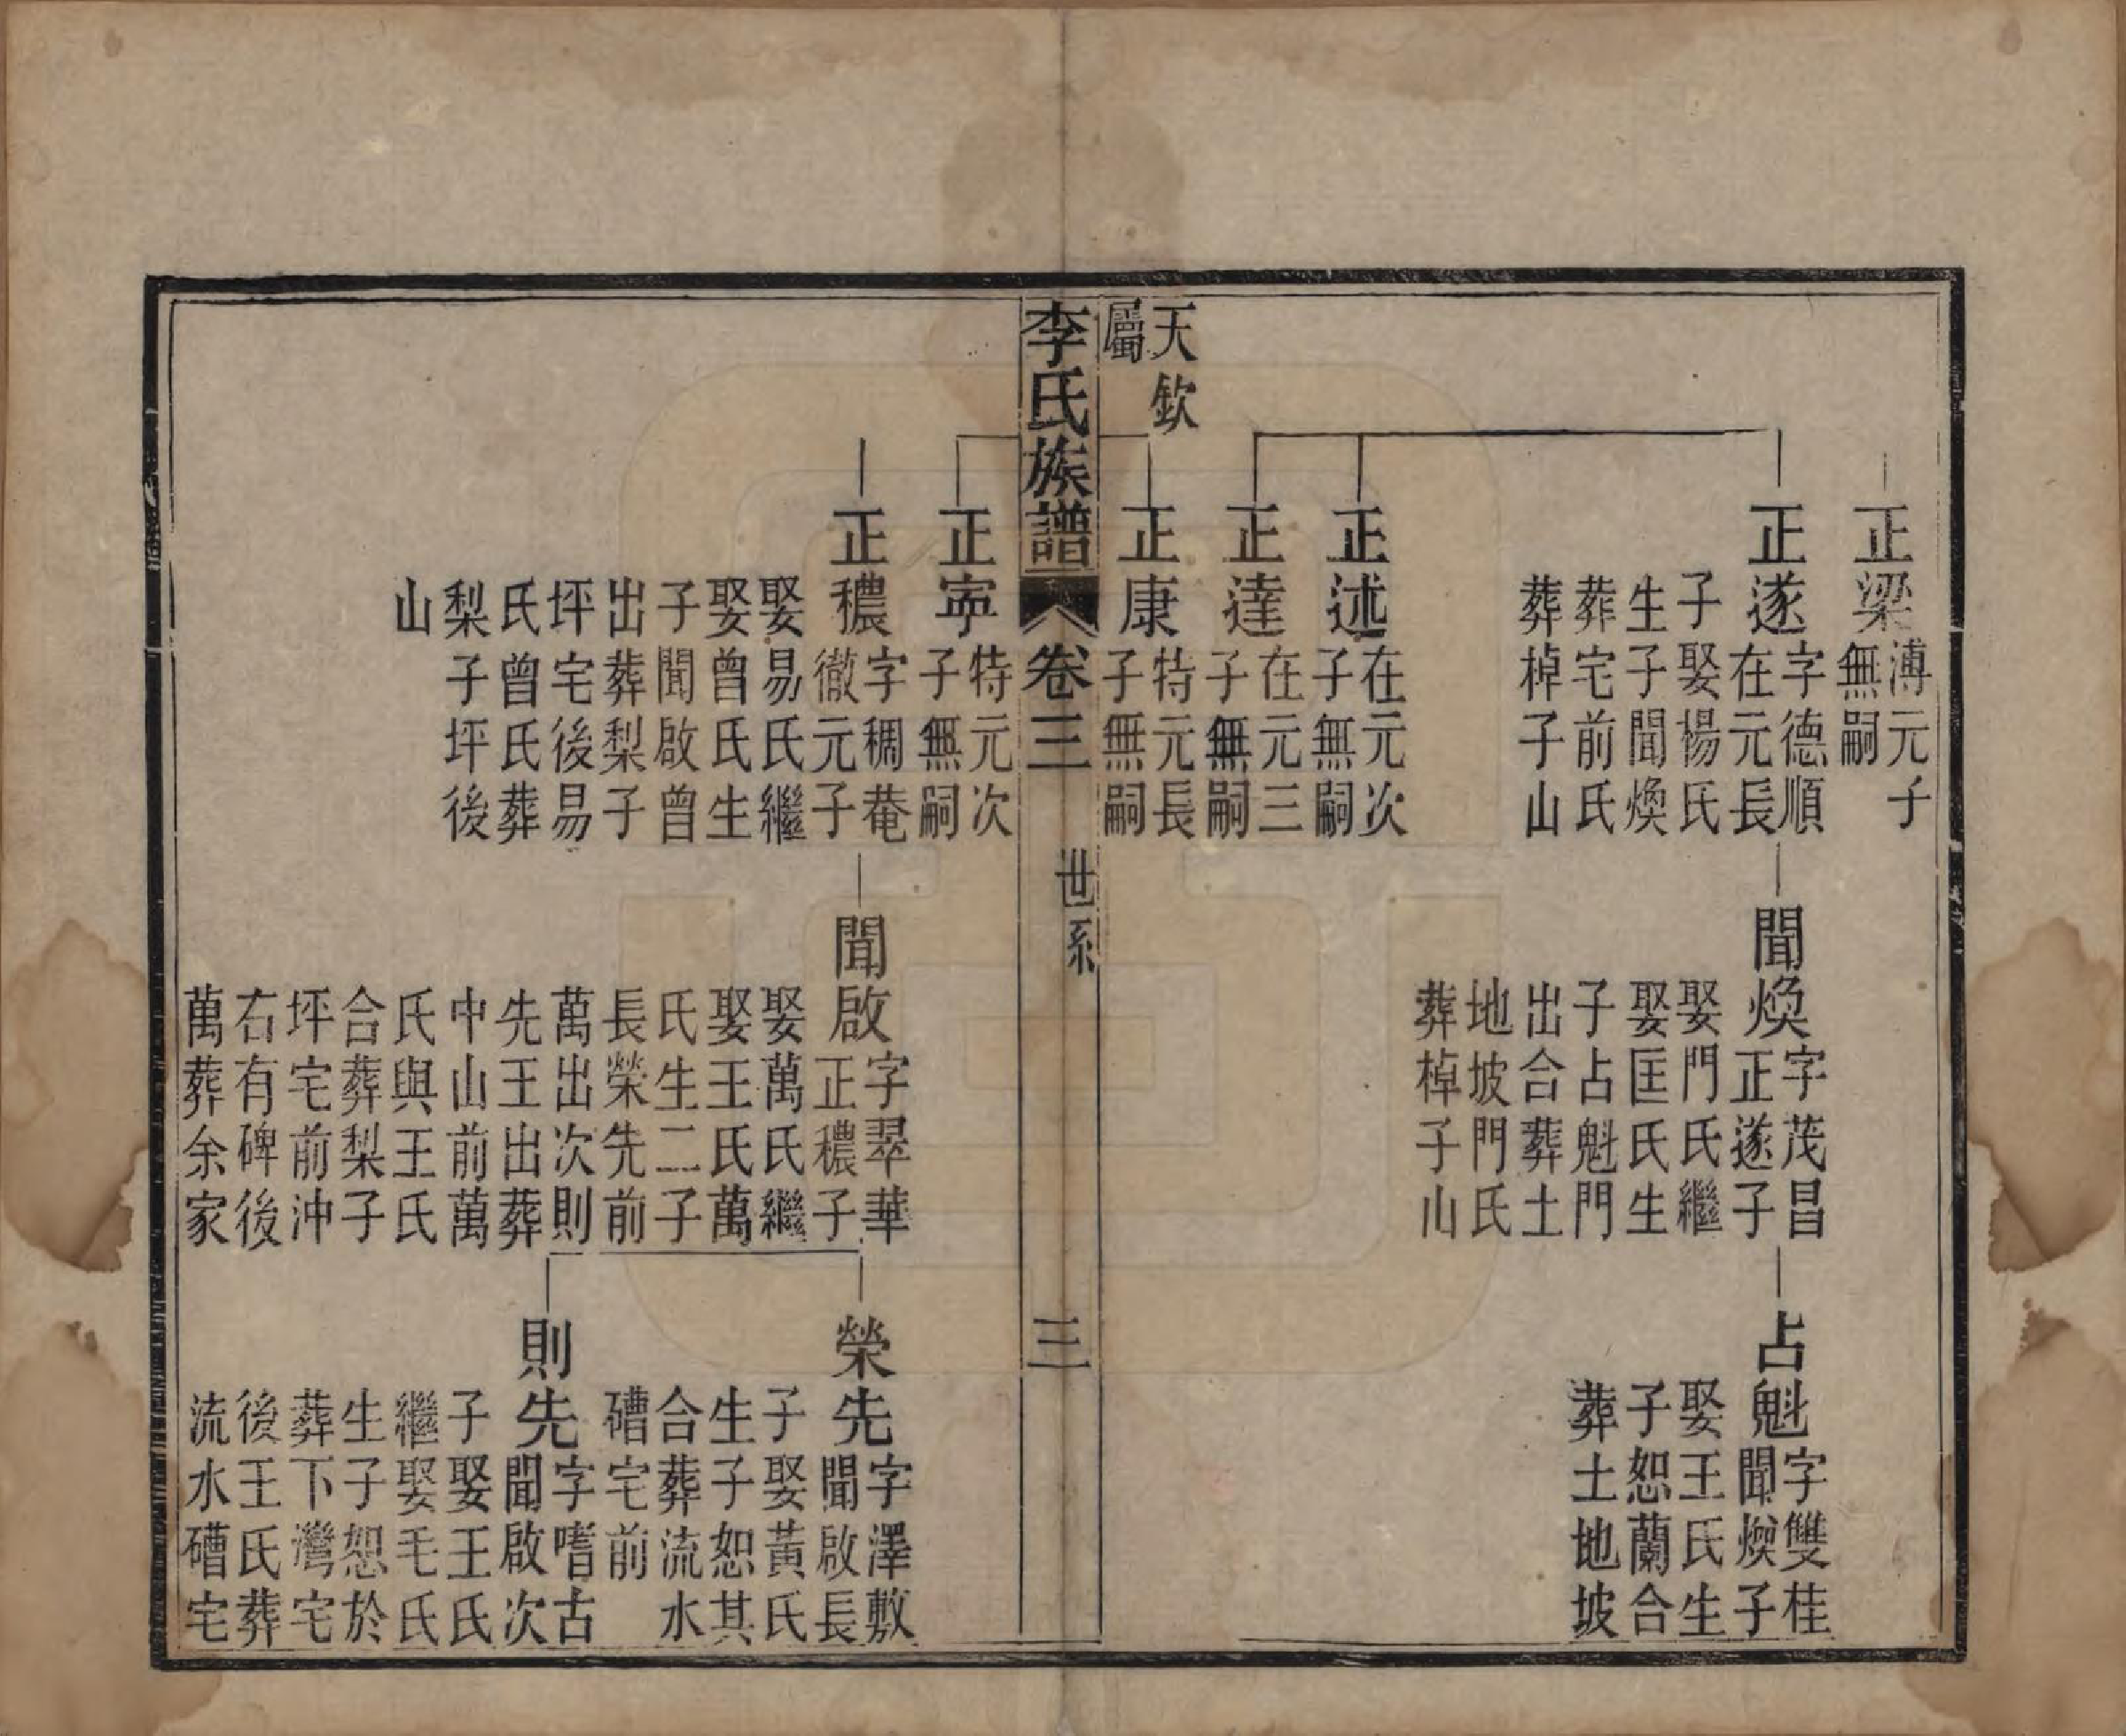 正梁
溥元子
無嗣
正遂
字德順
在元長
子娶楊氏
生子聞煥
葬宅前氏
葬棹子山
聞煥
字茂昌
正遂子
娶門氏繼
娶匡氏生
子占魁門
出合葬土
地坡門氏
葬棹子山
占魁
字雙桂
聞煥子
娶王氏生
子恕蘭合
葬土地坡
正述
在元次
子無嗣
正達
在元三
子無嗣
天欽
屬
正康
特元長
子無嗣
李氏族譜
卷三
世系
三
正寧
特元次
子無嗣
正穠
字稠菴
徹元子
娶易氏繼
娶曾氏生
子聞啟曾
出葬梨子
坪宅後易
氏曾氏葬
梨子坪後
山
聞啟
字翠華
正穠子
娶萬氏繼
娶王氏萬
氏生二子
長榮先前
萬出次則
先王出葬
中山前萬
氏與王氏
合葬梨子
坪宅前沖
右有碑後
萬葬余家
榮先
字澤敷
聞啟長
子娶黃氏
生子恕其
合葬流水
磄宅前
則先
字嗜古
聞啟次
子娶王氏
繼娶毛氏
生子恕於
葬下灣宅
後王氏葬
流水磄宅